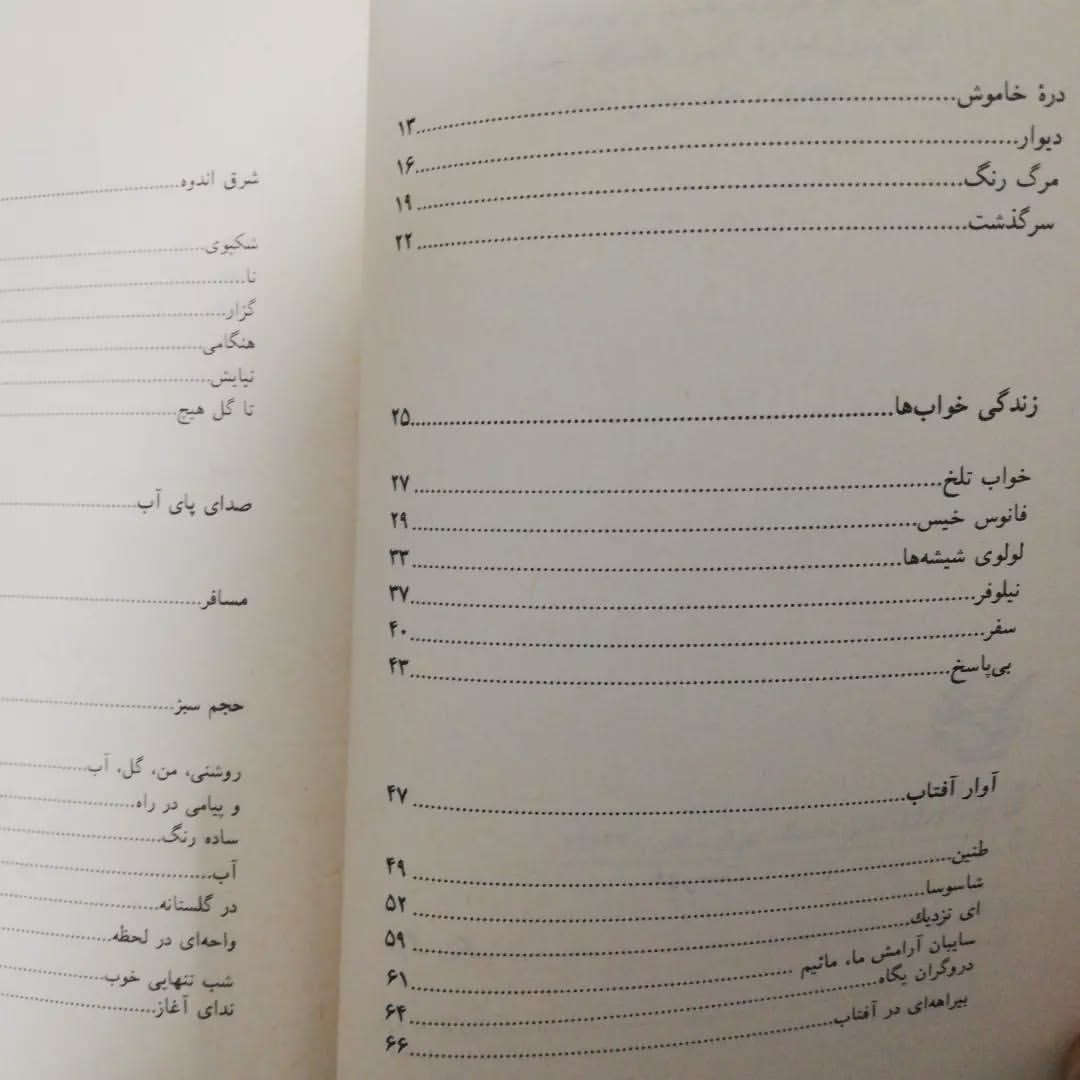 درهٔ خاموش...............۱۳
دیوار...............۱۶
مرگ رنگ...............۱۹
سرگذشت...............۲۲
زندگی خواب‌ها...............۲۵
خواب تلخ...............۲۷
فانوس خیس...............۲۹
لولوی شیشه‌ها...............۳۳
نیلوفر...............۳۷
سفر...............۴۰
بی‌پاسخ...............۴۳
آوار آفتاب...............۴۷
طنین...............۴۹
شاسوسا...............۵۲
ای نزدیك...............۵۹
سایبان آرامش ما، مائیم...............۶۱
دروگران پگاه...............۶۴
بیراهه‌ای در آفتاب...............۶۶
شرق اندوه...............
شکپوی...............
تا...............
گزار...............
هنگامی...............
نیایش...............
تا گل هیچ...............
صدای پای آب...............
مسافر...............
حجم سبز...............
روشنی، من، گل، آب...............
و پیامی در راه...............
ساده رنگ...............
آب...............
در گلستانه...............
واحه‌ای در لحظه...............
شب تنهایی خوب...............
ندای آغاز...............